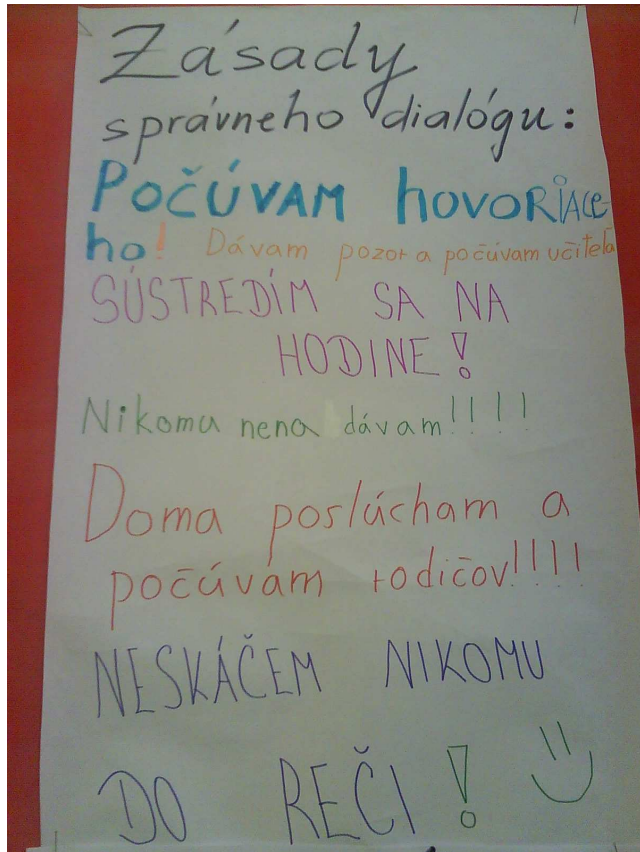 Zásady
správneho dialógu:
POČÚVAM hovoRiace-
ho! Dávam pozor a počúvam učiteľa
SÚSTREDÍM SA NA
HODINE!
Nikomu nena dávam!!!!
Doma poslúcham a
počúvam rodičov!!!!
NESKÁČEM NIKOMU
DO REČI!